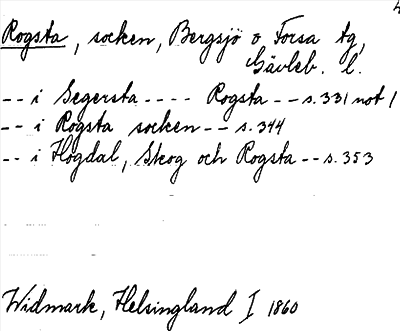 4
Rogsta, socken, Bergsjö o Forsa tg,
Gävleb. l.
-- i Segersta ---- Rogsta -- s. 331 not 1
-- i Rogsta socken -- s. 344
-- i Högdal, Skog och Rogsta -- s. 353
Widmark, Helsingland I 1860